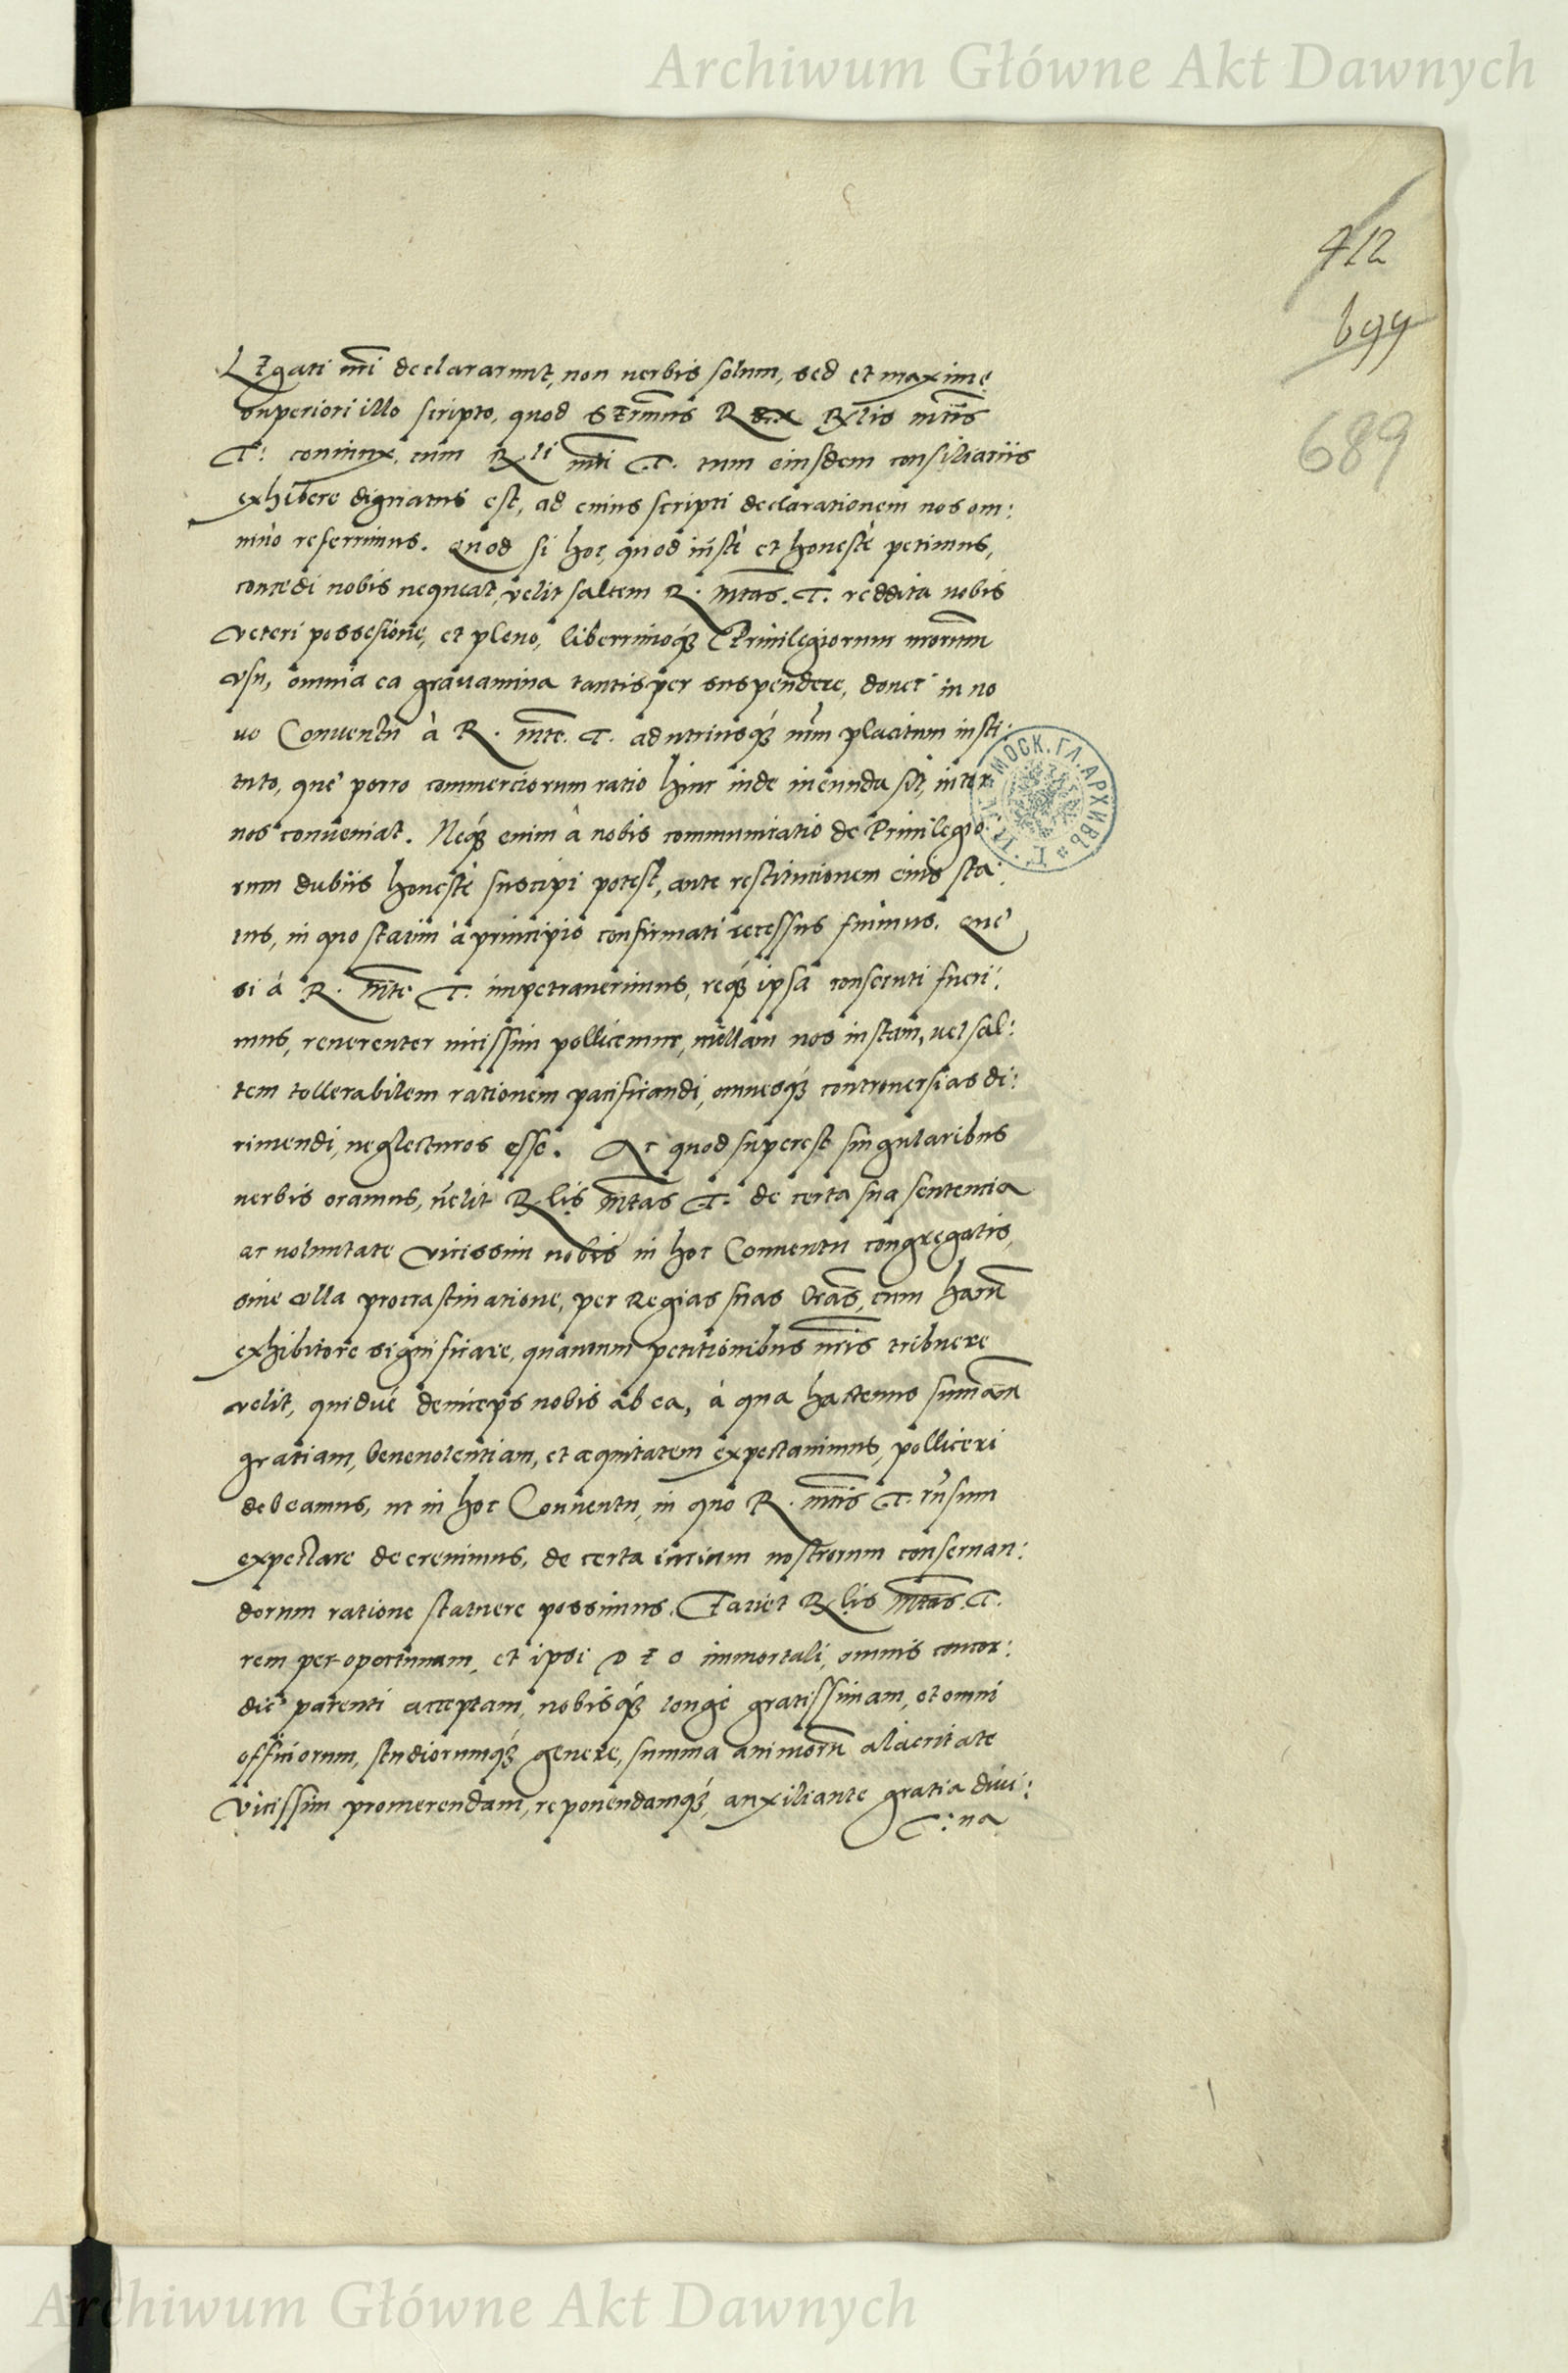 Archiwum Główne Akt Dawnych
412
699
689
LEgati nri declararunt, non uerbis solum, sed et maxime
superiori illo scripto, quod SErmus Rex Rglis mtis
T: coniunx, cum Rgli mti T. tum eiusdem consiliariis
exhibere dignatus est, ad cuius scripti declarationem nos om:
nino referimus. Quod si hoc, quod iuste et honeste petimus,
concedi nobis nequeat, velit saltem R. mtas. T. reddita nobis
veteri possesione, et pleno, liberrimoq3 Priuilegiorum nrorum
vsu, omnia ea grauamina tantisper suspendere, donec in no
uo Conuentu à R. mte. T. ad utriusq3 nrm placitum insti:
tuto, que porro commerciorum ratio hinc inde ineunda sit, inter
nos conueniat. Neq3 enim à nobis communicatio de Priuilegio:
rum dubiis honeste suscipi potest, ante restitucionem eius sta:
tus, in quo statim à principio confirmati recessus fuimus. Que
si à R. mte T. impetrauerimus, req3 ipsa consecuti fueri:
mus, reuerenter uicissim pollicemur, nullam nos iustam, uel sal:
tem tollerabilem rationem pacificandi, omnesq3 controuersias di:
rimendi, neglecturos esse. Ac quod superest singularibus
uerbis oramus, uelit Rglis mtas T. de certa sua sentencia
ac uoluntate vicissim nobis in hoc Conuentu congregatis,
sine vlla procrastinatione, per Regias suas lras, cum harum
exhibitore significare, quantum petitionibus nris tribuere
velit, quidue deinceps nobis ab ea, à qua hactenus summam
gratiam, beneuolentiam, et æquitatem expectauimus, polliceri
debeamus, ut in hoc Conuentu, in quo R. mtis T. rnsum
expectare decreuimus, de certa iurium nostrorum conseruan:
dorum ratione statuere possimus. Faciet Rglis mtas. T.
rem peroportunam, et ipsi DEO immortali, omnis concor:
die parenti acceptam, nobisq3 longe gratissimam, et omni
officiorum, studiorumq3 genere, summa animoru alacritate
vicissim promerendam, reponendamq3, auxiliante gratia diui:
T: na
МОСК. ГЛ. АРХИВЪ
Archiwum Główne Akt Dawnych